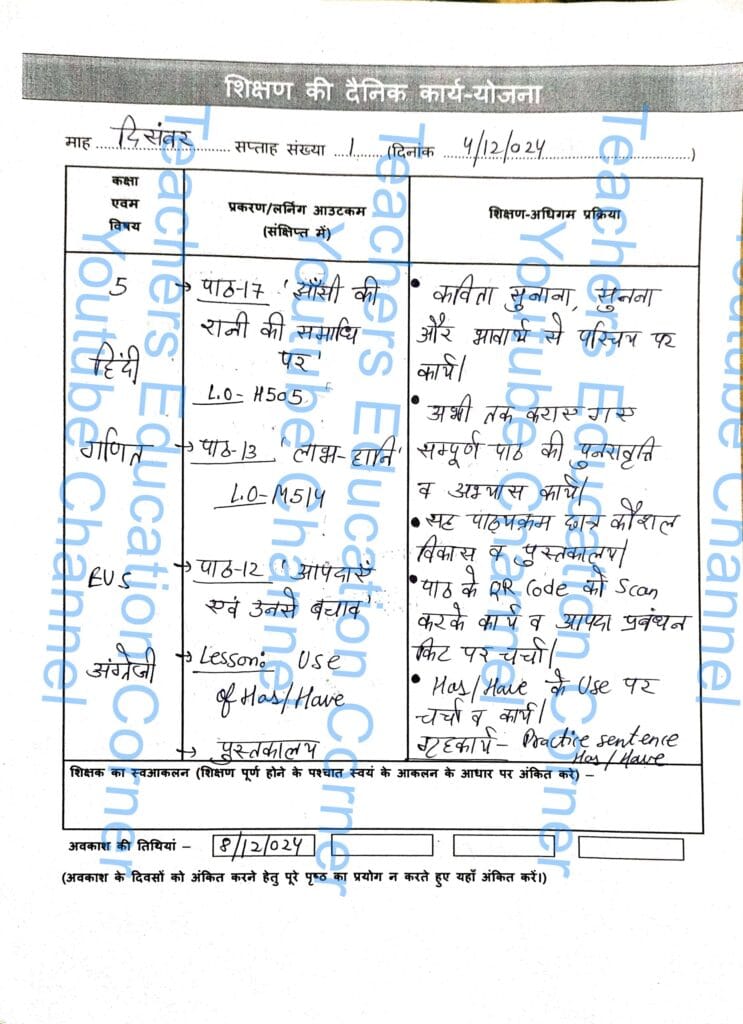 शिक्षण की दैनिक कार्य-योजना
माह दिसंबर सप्ताह संख्या 1 (दिनांक 4/12/024)
कक्षा एवम विषय
प्रकरण/लर्निंग आउटकम (संक्षिप्त में)
शिक्षण-अधिगम प्रक्रिया
5
हिंदी
→ पाठ-17 'झाँसी की
रानी की समाधि
पर'
L.O- H505
• कविता सुनाना, सुनना
और भावार्थ से परिचय पर
कार्य।
गणित
→ पाठ-13 'लाभ-हानि'
L.O-M514
• अभी तक कराए गए
सम्पूर्ण पाठ की पुनरावृत्ति
व अभ्यास कार्य।
• सह पाठ्यक्रम छात्र कौशल
विकास व पुस्तकालय।
EVS
→ पाठ-12 'आपदाएँ
एवं उनसे बचाव'
• पाठ के QR Code को Scan
करके कार्य व आपदा प्रबंधन
किट पर चर्चा।
अंग्रेजी
→ Lesson: Use
of Has/Have
• Has/Have के Use पर
चर्चा व कार्य।
→ पुस्तकालय
गृहकार्य- Practice sentence
Has/Have
शिक्षक का स्वआकलन (शिक्षण पूर्ण होने के पश्चात स्वयं के आकलन के आधार पर अंकित करे) –
अवकाश की तिथियां – 8/12/024
(अवकाश के दिवसों को अंकित करने हेतु पूरे पृष्ठ का प्रयोग न करते हुए यहाँ अंकित करें।)
Teachers Education Corner
Youtube Channel
Teachers Education Corner
Youtube Channel
Teachers Education Corner
Youtube Channel